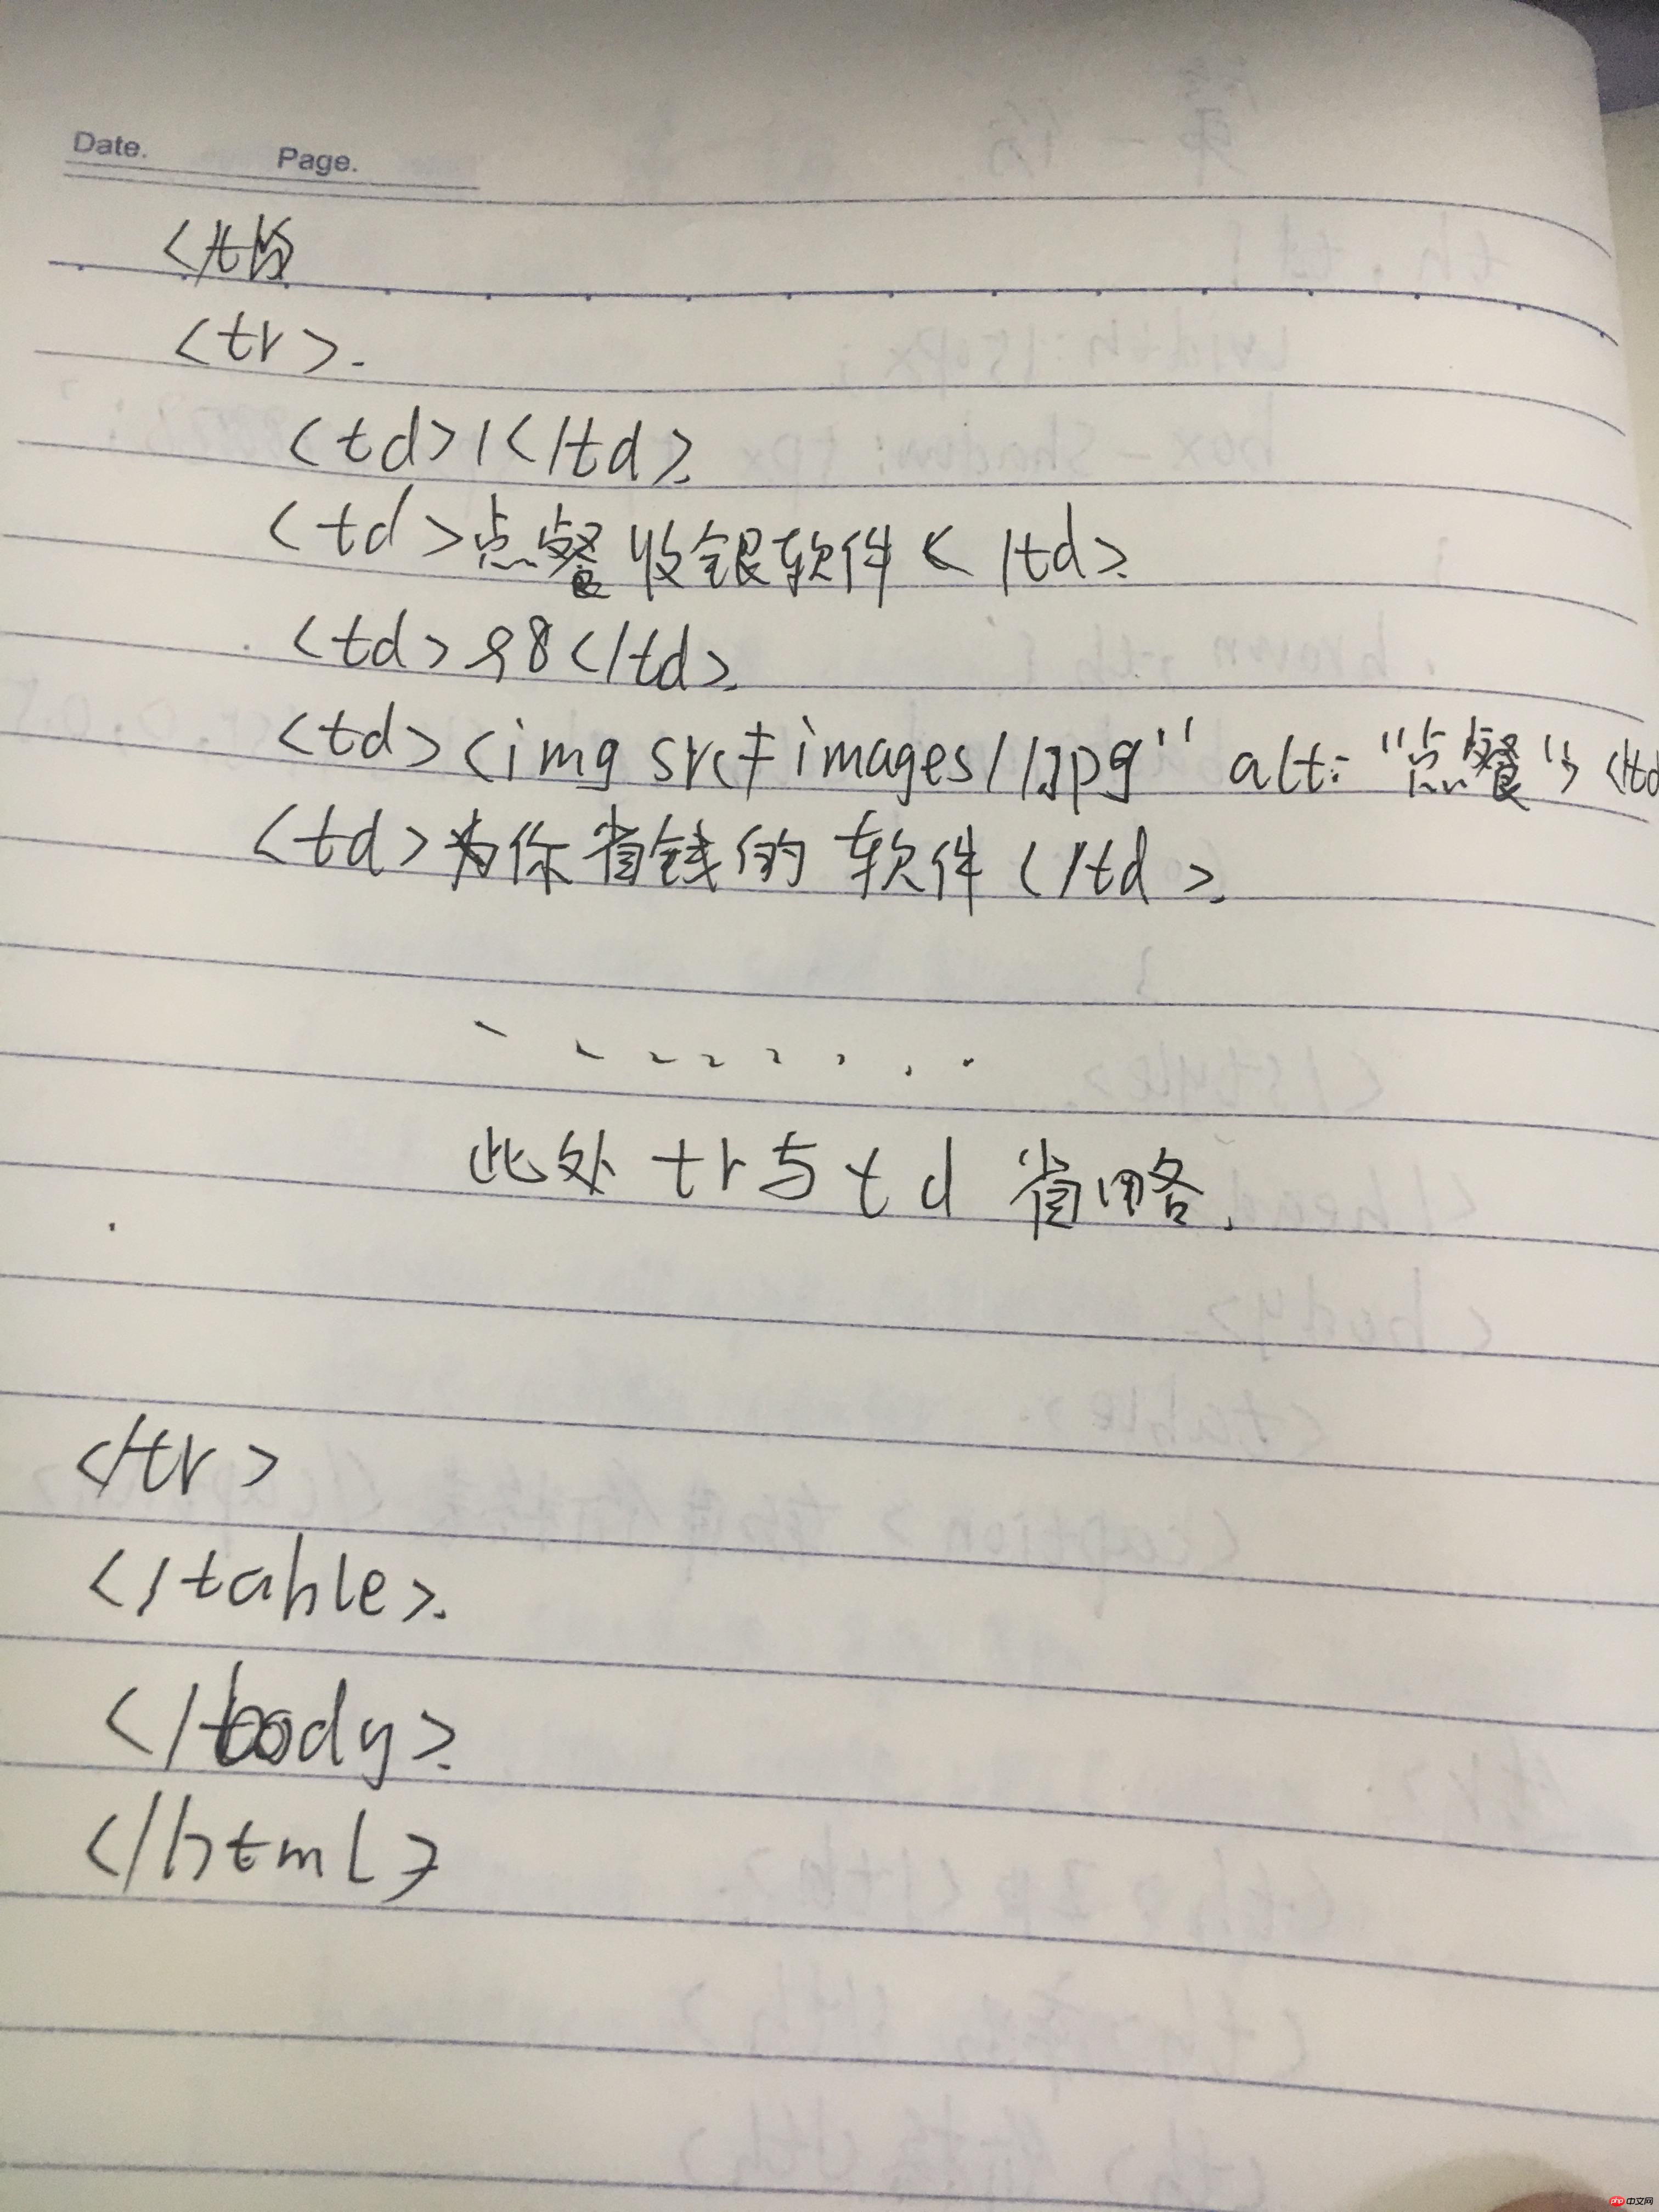 Date. Page.
</tr>
<tr>.
<td>1</td>.
<td>点餐收银软件</td>.
<td>98</td>.
<td><img src="images/1.jpg" alt="点餐"></td
<td>为你省钱的软件</td>.
........
此处tr与td省略.
</tr>
</table>.
</body>.
</html>
php中文网